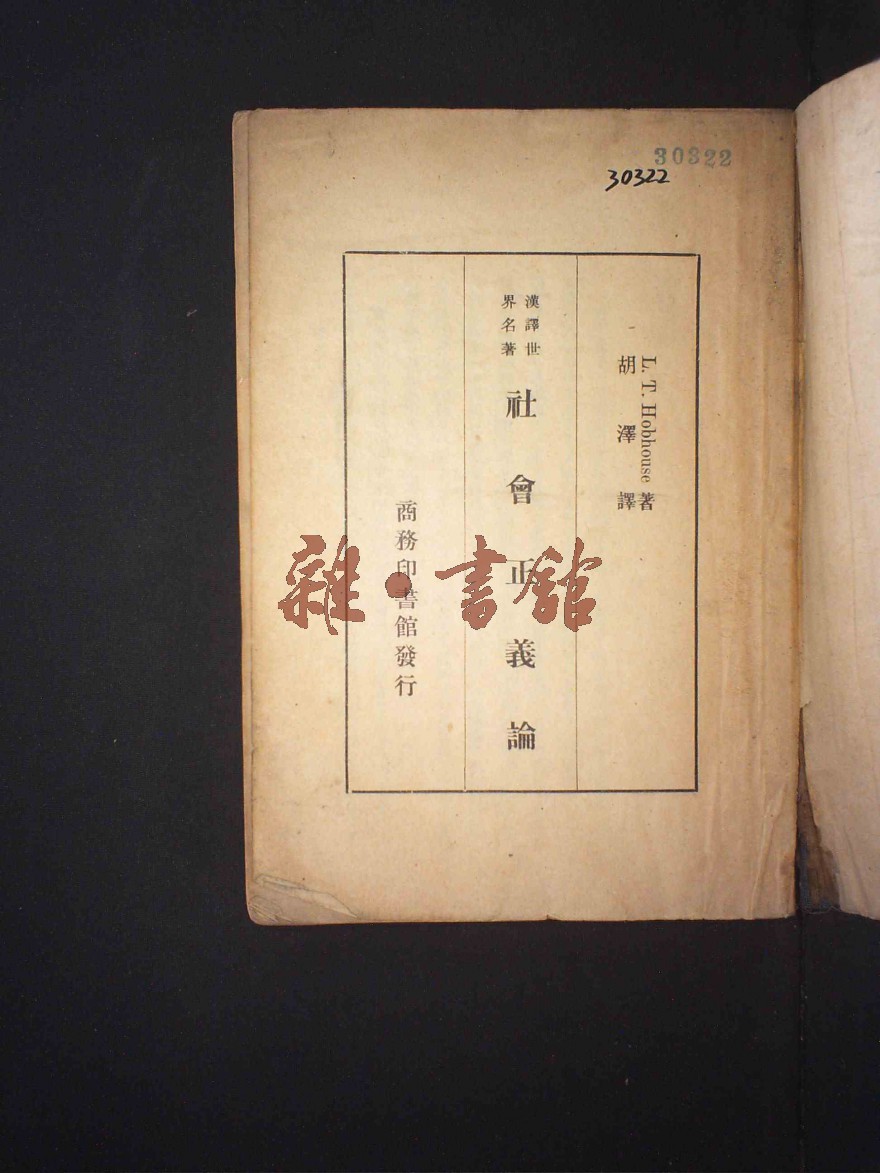 30322
30322
L. T. Hobhouse 著
胡澤譯
漢譯世
界名著
社會正義論
商務印書館發行
雜·書館